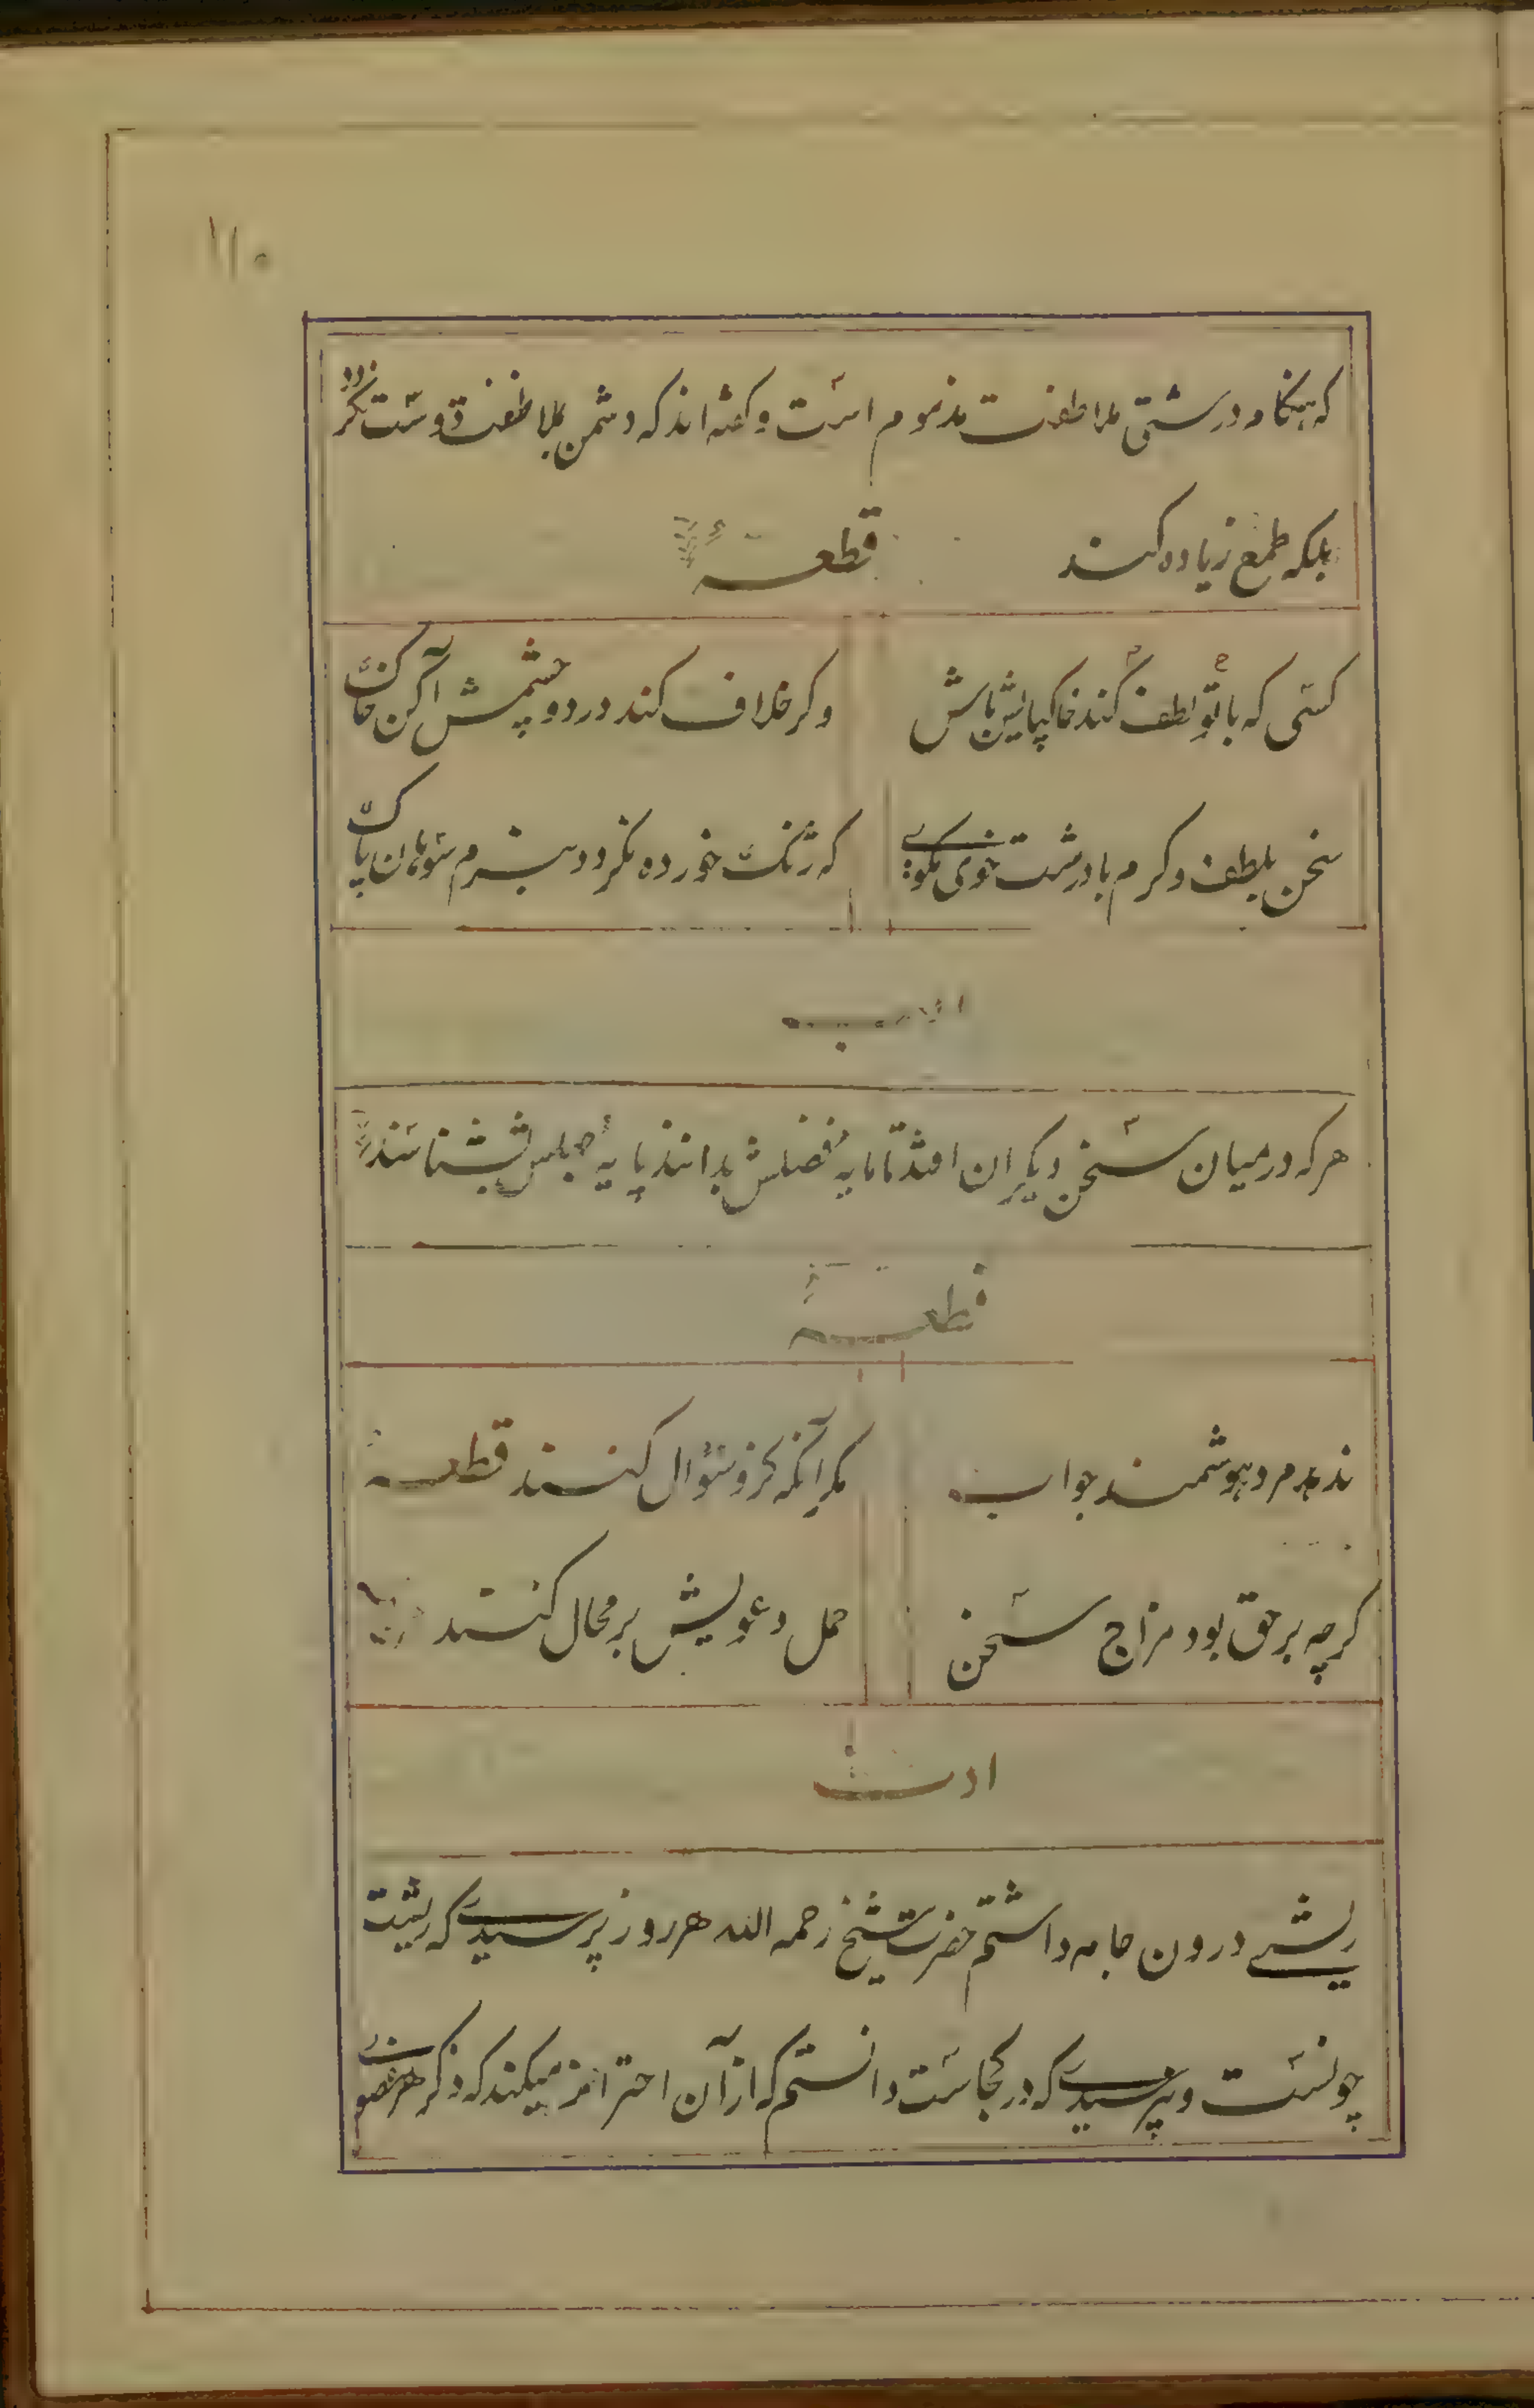 ۱۱۰
که هنکام درشتی ملاطفت مذموم است و کفته اند که دشمن بملاطفت دوست نکردد
بلکه طمع زیاده کند قطعه
کسی که با تو لطف کند خاکپایش باش وکر خلاف کند در دو چشمش آکن خاک
سخن بلطف و کرم با درشت خوی مکوی که زنک خورده نکردد بنرم سوهان پاک
ادب
هرکه در میان سخن دیکران افتد تا مایه فضلش بدانند پایه جهلش بشناسند
قطعه
ندهد مرد هوشمند جواب مکر آنکه کزو سؤال کنند قطعه
کرچه بر حق بود مزاج سخن حمل دعویش بر محال کنند
ادب
ریشی درون جامه داشتم حضرت شیخ رحمه الله هر روز پرسیدی که ریشت
چونست و نپرسیدی که در کجاست دانستم که از آن احتراز میکند که ذکر هر عضوی